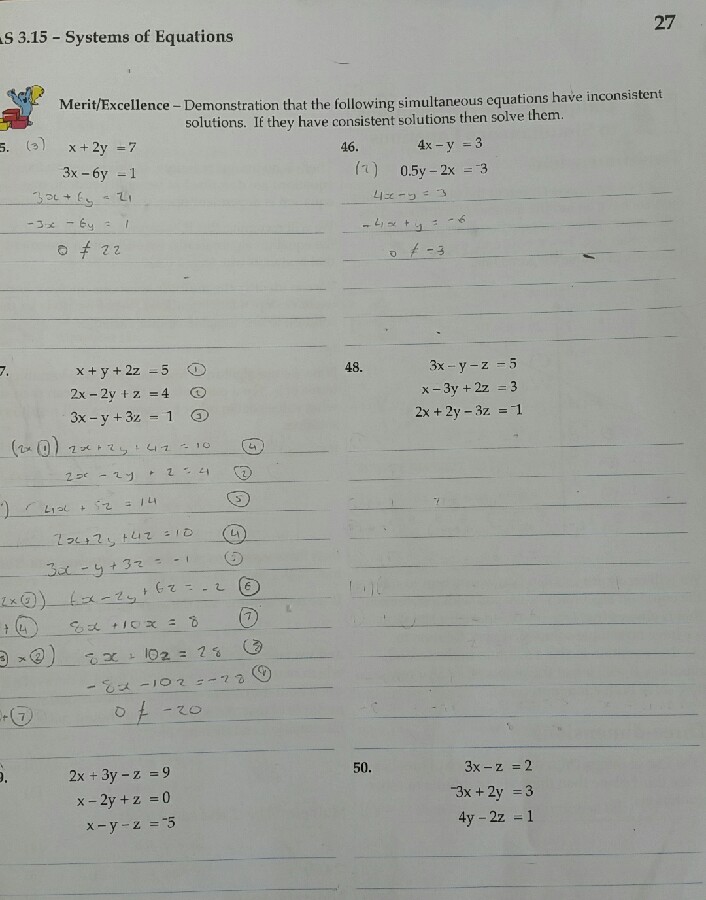 27
AS 3.15 – Systems of Equations
Merit/Excellence – Demonstration that the following simultaneous equations have inconsistent
solutions. If they have consistent solutions then solve them.
5. (3) x + 2y = 7
3x – 6y = 1
3x + 6y = 21
-3x - 6y = 1
0 ≠ 22
46. 4x – y = 3
(2) 0.5y – 2x = ⁻3
4x - y = 3
-4x + y = -6
0 ≠ -3
7. x + y + 2z = 5 ①
2x – 2y + z = 4 ②
3x – y + 3z = ⁻1 ③
(2x①) 2x + 2y + 4z = 10 ④
2x - 2y + z = 4 ②
4x + 5z = 14 ⑤
2x + 2y + 4z = 10 ④
3x - y + 3z = -1
2x③) 6x - 2y + 6z = -2 ⑥
+④ 8x + 10z = 8 ⑦
x②) 8x + 10z = 28
-8x - 10z = -28
+⑦ 0 ≠ -20
48. 3x – y – z = 5
x – 3y + 2z = 3
2x + 2y – 3z = ⁻1
9. 2x + 3y – z = 9
x – 2y + z = 0
x – y – z = ⁻5
50. 3x – z = 2
⁻3x + 2y = 3
4y – 2z = 1